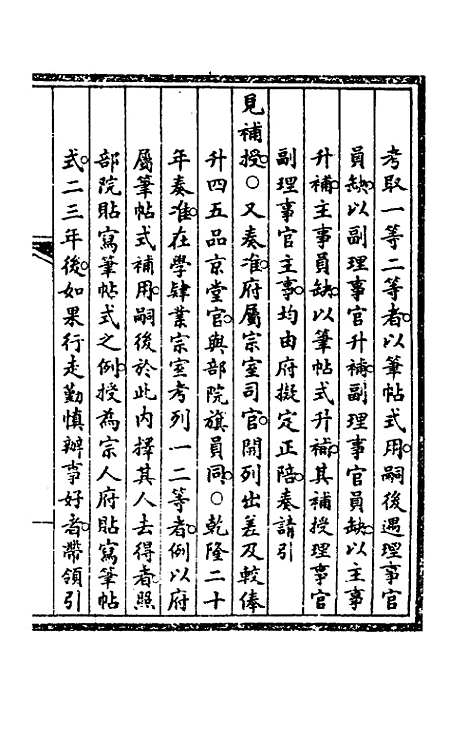 考取一等二等者。以筆帖式用。嗣後遇理事官
員缺。以副理事官升補。副理事官員缺。以主事
升補。主事員缺。以筆帖式升補。其補授理事官
副理事官主事。均由府擬定正陪。奏請引
見補授。○又奏准。府屬宗室司官。開列出差及較俸
升四五品京堂官。與部院旗員同。○乾隆二十
年奏准。在學肄業宗室考列一二等者。例以府
屬筆帖式補用。嗣後於此內擇其人去得者。照
部院貼寫筆帖式之例。授為宗人府貼寫筆帖
式。二三年後。如果行走勤慎辦事好者。帶領引